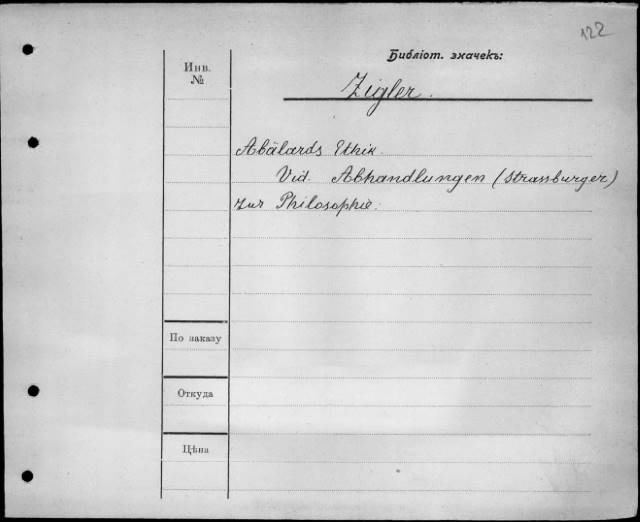 122
Библіот. значекъ:
Инв.
№
Zigler.
Abälards Ethik.
Vid. Abhandlungen (Strassburger)
zur Philosophie.
По заказу
Откуда
Цѣна